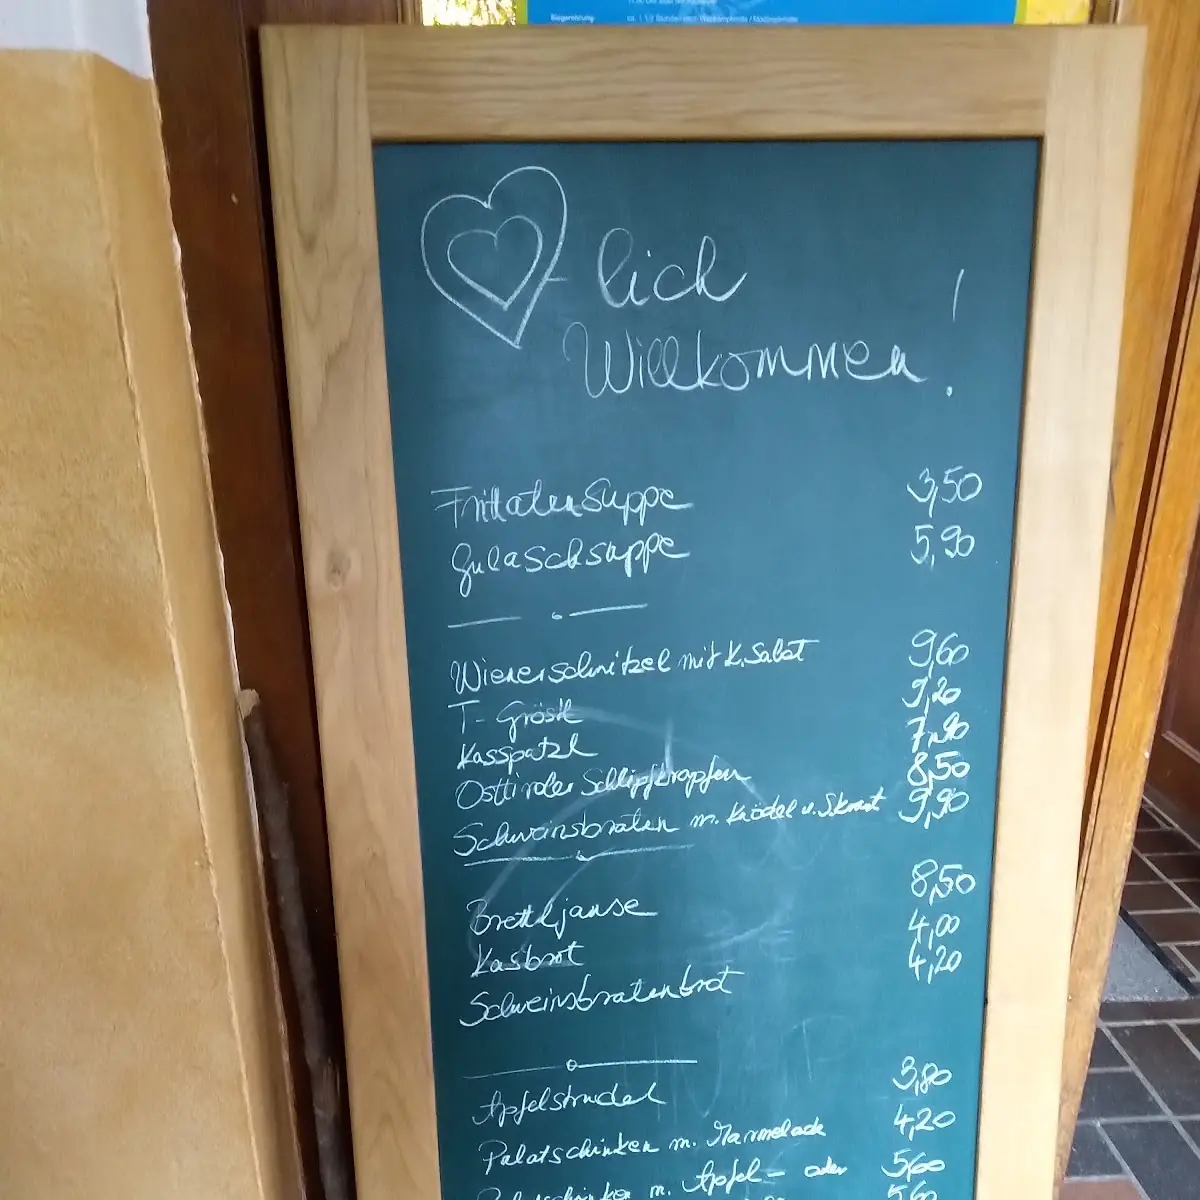 Siegerehrung: ca. 1 1/2 Stunden nach
-lich
Willkommen!
Frittatensuppe 3,50
Gulaschsuppe 5,90
Wienerschnitzel mit K.Salat 9,60
T- Gröstl 9,20
Kasspatzl 7,90
Osttiroler Schlipfkrapfen 8,50
Schweinsbraten m. Knödel u. S.kraut 9,90
Brettljause 8,50
Kasbrot 4,00
Schweinsbratenbrot 4,20
Apfelstrudel 3,80
Palatschinken m. Marmelade 4,20
Palatschinken m. Apfel- oder 5,60
5,60